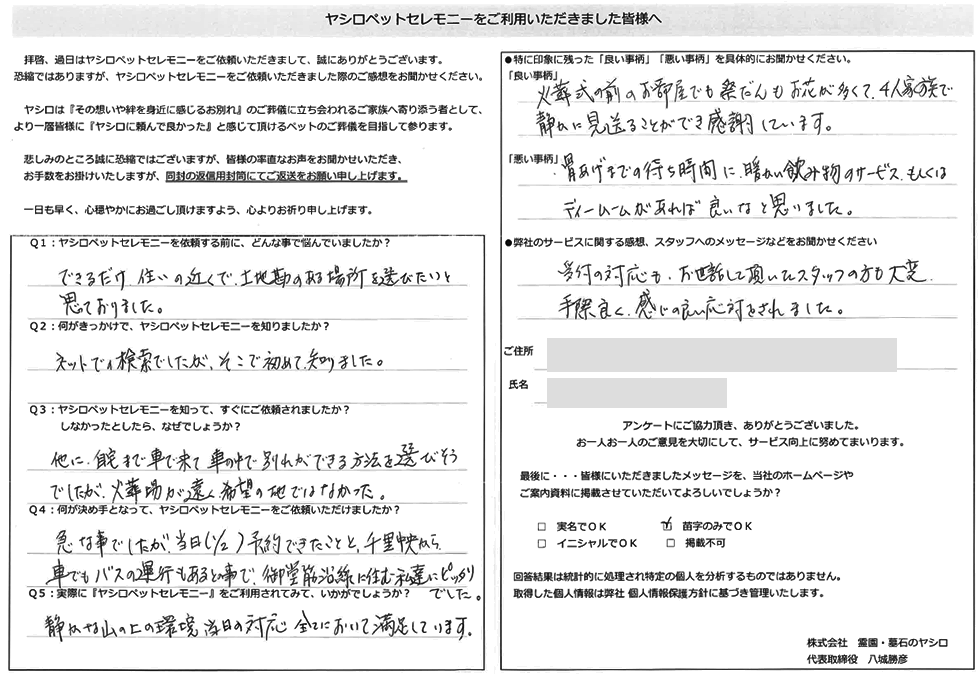 ヤシロペットセレモニーをご利用いただきました皆様へ
拝啓、過日はヤシロペットセレモニーをご依頼いただきまして、誠にありがとうございます。
恐縮ではありますが、ヤシロペットセレモニーをご依頼いただきました際のご感想をお聞かせください。
ヤシロは『その想いや絆を身近に感じるお別れ』のご葬儀に立ち会われるご家族へ寄り添う者として、
より一層皆様に『ヤシロに頼んで良かった』と感じて頂けるペットのご葬儀を目指して参ります。
悲しみのところ誠に恐縮ではございますが、皆様の率直なお声をお聞かせいただき、
お手数をお掛けいたしますが、同封の返信用封筒にてご返送をお願い申し上げます。
一日も早く、心穏やかにお過ごし頂けますよう、心よりお祈り申し上げます。
Q1：ヤシロペットセレモニーを依頼する前に、どんな事で悩んでいましたか？
できるだけ 住いの近くで、土地勘のある場所を選びたいと
思っておりました。
Q2：何がきっかけで、ヤシロペットセレモニーを知りましたか？
ネットでの検索でしたが、そこで初めて知りました。
Q3：ヤシロペットセレモニーを知って、すぐにご依頼されましたか？
しなかったとしたら、なぜでしょうか？
他に、自宅まで車で来て 車の中で別れができる方法を選びそう
でしたが、火葬場が遠く希望の地ではなかった。
Q4：何が決め手となって、ヤシロペットセレモニーをご依頼いただけましたか？
急な事でしたが、当日(1/2)予約できたことと、千里中央から
車でもバスの運行もあるとの事で、御堂筋沿線に住む私達にピッタリ
でした。
Q5：実際に『ヤシロペットセレモニー』をご利用されてみて、いかがでしょうか？
静かな山の上の環境 当日の対応 全てにおいて満足しています。
●特に印象に残った「良い事柄」「悪い事柄」を具体的にお聞かせください。
「良い事柄」
火葬式の前のお部屋でも祭だんもお花が多くて、4人家族で
静かに見送ることができ感謝しています。
「悪い事柄」
・骨あげまでの待ち時間に、暖かい飲み物のサービス、もしくは
ティールームがあれば良いなと思いました。
●弊社のサービスに関する感想、スタッフへのメッセージなどをお聞かせください
受付の対応も、お世話して頂いたスタッフの方も大変
手際良く、感じの良い応対をされました。
ご住所
氏名
アンケートにご協力頂き、ありがとうございました。
お一人お一人のご意見を大切にして、サービス向上に努めてまいります。
最後に・・・皆様にいただきましたメッセージを、当社のホームページや
ご案内資料に掲載させていただいてよろしいでしょうか？
□ 実名でOK ☑ 苗字のみでOK
□ イニシャルでOK □ 掲載不可
回答結果は統計的に処理され特定の個人を分析するものではありません。
取得した個人情報は弊社 個人情報保護方針に基づき管理いたします。
株式会社 霊園・墓石のヤシロ
代表取締役 八城勝彦